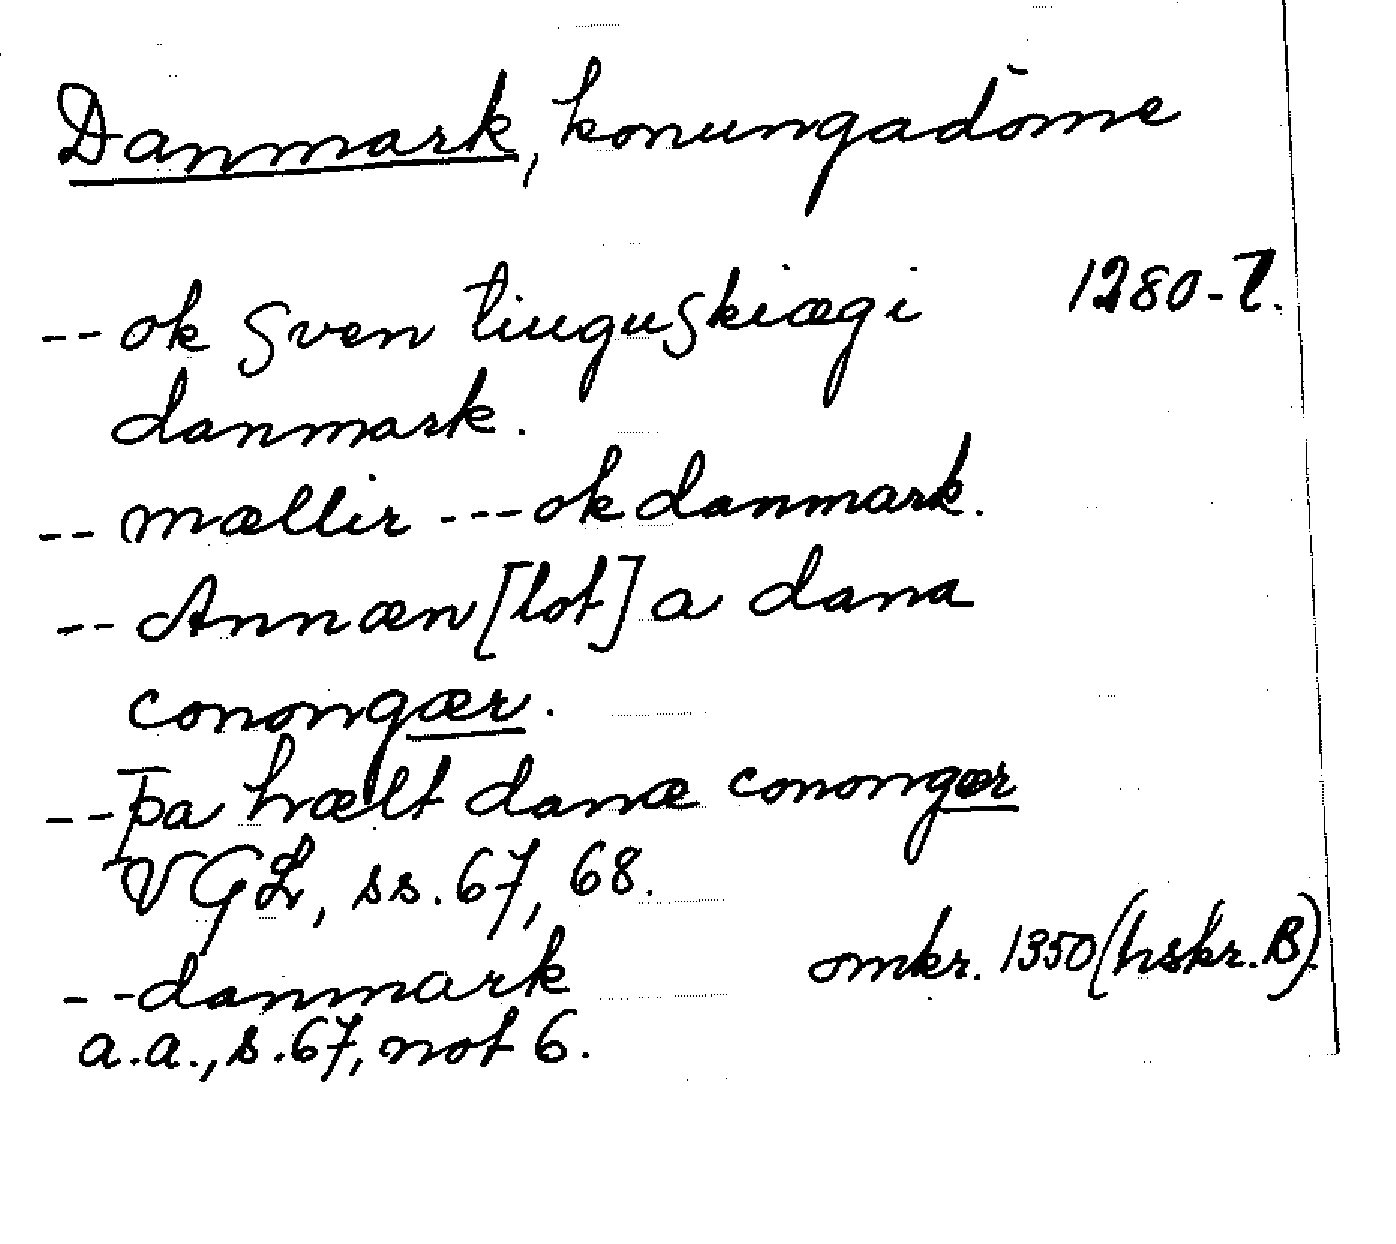 Danmark, konungadöme
-- ok Sven tiuguskiægi 1280-t.
danmark.
-- mællir --- ok danmark.
-- Annæn [lot] a dana
conongær.
-- þa hælt danæ conongær
VGL, ss. 67, 68.
-- danmark omkr. 1350 (hskr. B).
a.a., s. 67, not 6.